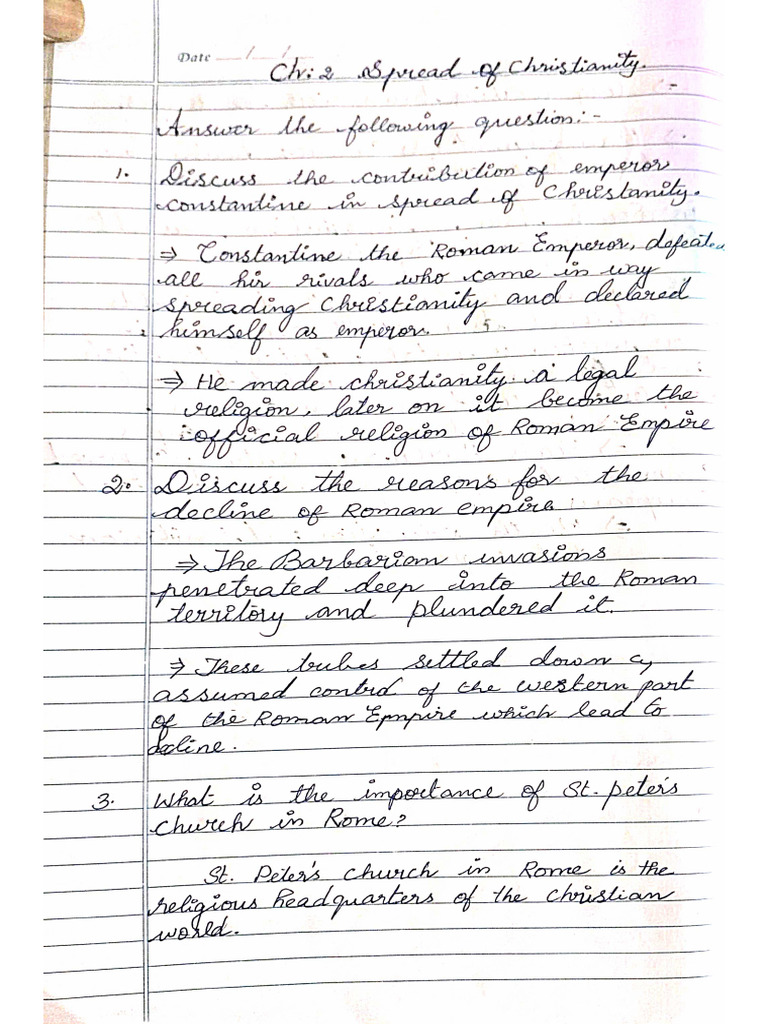 Date
Ch: 2 Spread of Christianity.
Answer the following question:-
1. Discuss the contribution of emperor
constantine in spread of Christanity.
⇒ Constantine the Roman Emperor, defeated
all his rivals who came in way
spreading Christianity and declared
himself as emperor.
⇒ He made christianity a legal
religion, later on it become the
official religion of Roman Empire
2. Discuss the reasons for the
decline of Roman empire
⇒ The Barbarian invasions
penetrated deep into the Roman
territory and plundered it.
⇒ These tribes settled down
assumed control of the western part
of the Roman Epmpire which lead to
decline.
3. What is the importance of St. peter's
church in Rome?
St. Peter's church in Rome is the
religious headquarters of the Christian
world.